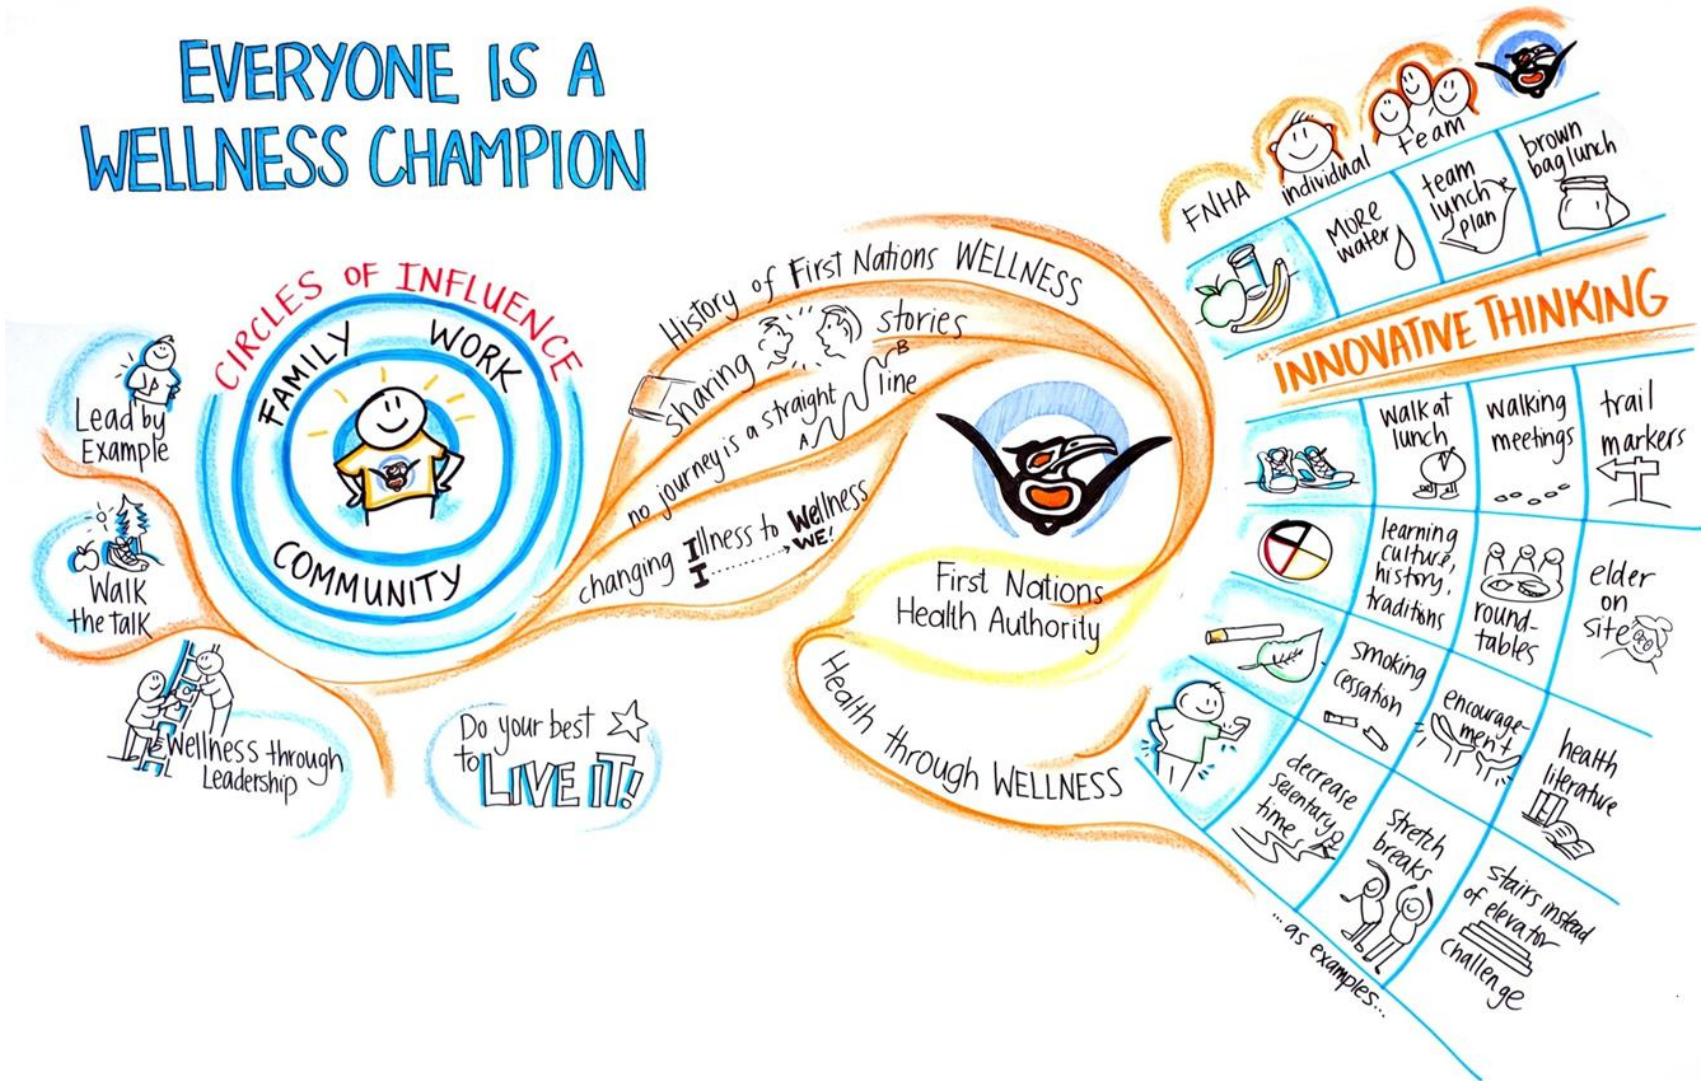 EVERYONE IS A
WELLNESS CHAMPION
CIRCLES OF INFLUENCE
FAMILY
WORK
COMMUNITY
Lead by
Example
Walk
the talk
Wellness through
Leadership
Do your best
to LIVE IT!
History of First Nations WELLNESS
sharing stories
no journey is a straight line
A
B
changing Illness to Wellness
I WE!
First Nations
Health Authority
Health through WELLNESS
FNHA
individual
team
MORE
water
team
lunch
plan
brown
bag lunch
INNOVATIVE THINKING
walk at
lunch
walking
meetings
trail
markers
learning
culture,
history,
traditions
round-
tables
elder
on
site
smoking
cessation
encourage-
ment
health
literature
decrease
sedentary
time
stretch
breaks
stairs instead
of elevator
challenge
... as examples...